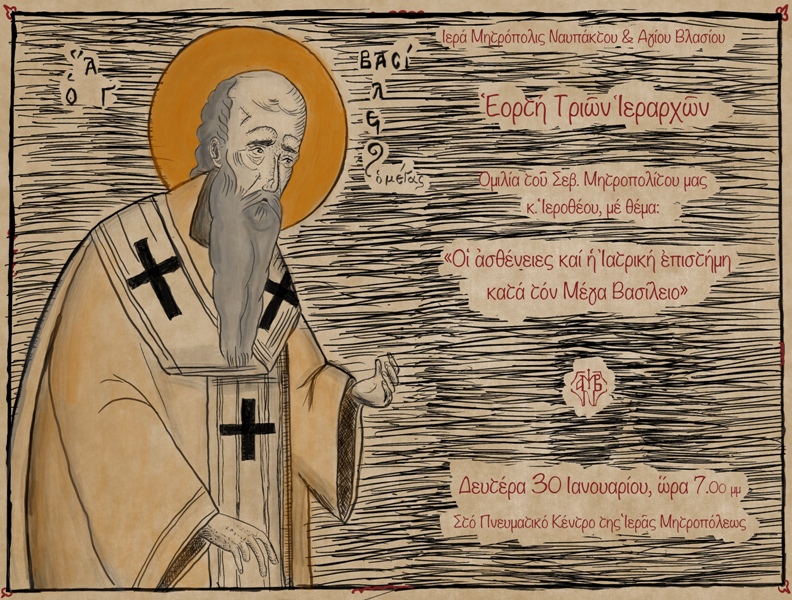 Ἅ
ὁ Γ
ΒΑCΊ
Λ
Ε
ὁ μέγας
Ἱερά Μητρόπολις Ναυπάκτου & Αγίου Βλασίου
Ἑορτή Τριῶν Ἱεραρχῶν
Ὁμιλία τοῦ Σεβ. Μητροπολίτου μας
κ. Ἱεροθέου, μέ θέμα:
«Οἱ ἀσθένειες καί ἡ Ἰατρική ἐπιστήμη
κατά τόν Μέγα Βασίλειο»
Δευτέρα 30 Ιανουαρίου, ὥρα 7.00 μμ
Στό Πνευματικό Κέντρο τῆς Ἱερᾶς Μητροπόλεως